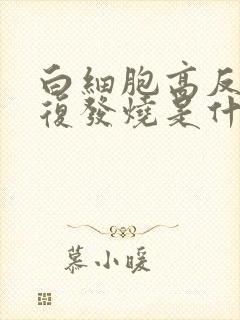 白細胞高反
復發燒是什
慕小暖